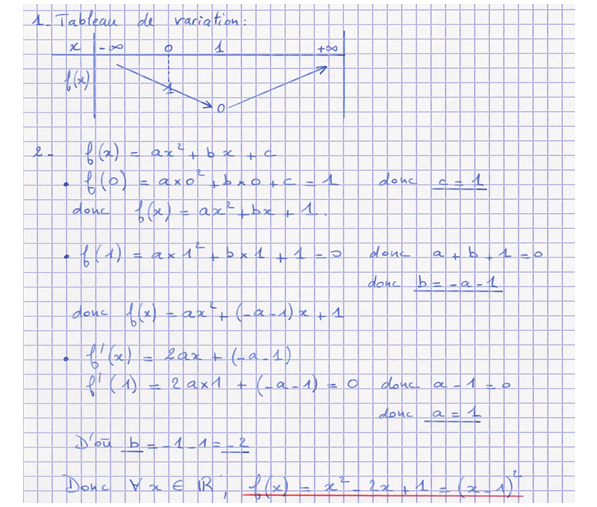 1_ Tableau de variation :
x -∞ 0 1 +∞
f(x) 1 0
2_ f(x) = ax² + bx + c
• f(0) = a×0² + b×0 + c = 1 donc c = 1
donc f(x) = ax² + bx + 1.
• f(1) = a×1² + b×1 + 1 = 0 donc a + b + 1 = 0
donc b = -a - 1
donc f(x) = ax² + (-a-1)x + 1
• f'(x) = 2ax + (-a-1)
f'(1) = 2a×1 + (-a-1) = 0 donc a - 1 = 0
donc a = 1
D'où b = -1 - 1 = -2
Donc ∀ x ∈ ℝ, f(x) = x² - 2x + 1 = (x-1)²